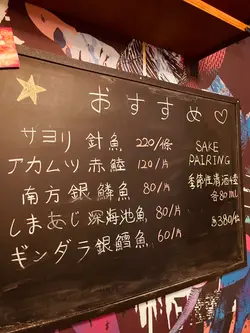 おすすめ♡
サヨリ 針魚 220/条
アカムツ 赤鯥 120/片
南方銀鱗魚 80/片
しまあじ 深海池魚 80/片
ギンダラ 銀鱈魚 60/片
SAKE
PAIRING
季節性清酒4種
各80ml
$380/位